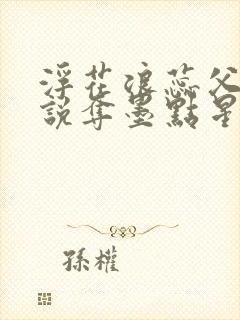 浮花浪蕊父
說奪墨點星
孫權